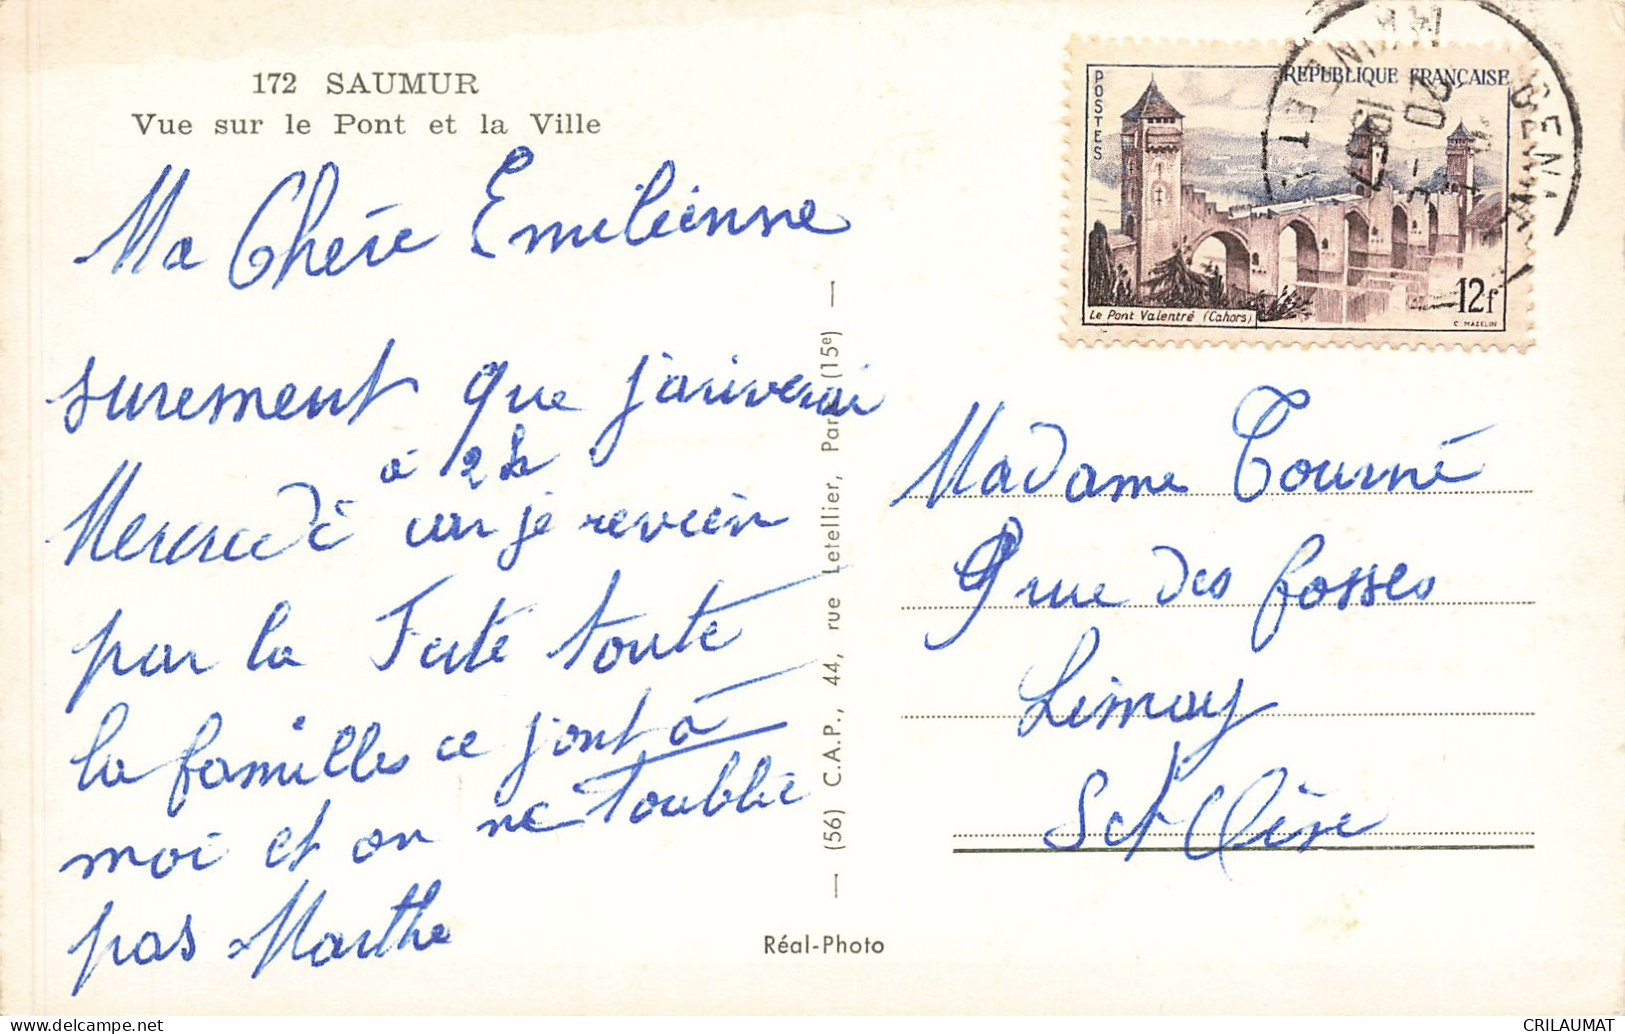 172 SAUMUR
Vue sur le Pont et la Ville
Ma Chère Emilienne
surement que j'ariverai
à 2h
Mercredi car je revien
par la Ferté toute
la familles ce joint à
moi et on ne t'oublie
pas Marthe
— (56) C.A.P., 44, rue Letellier, Paris (15e) —
Réal-Photo
POSTES
REPUBLIQUE FRANÇAISE
Le Pont Valentré (Cahors)
12f
C. MAZELIN
20 -
1957
MAINE ET L
Madame Tourné
9 rue des fosses
Limay
S et Oise
CRILAUMAT